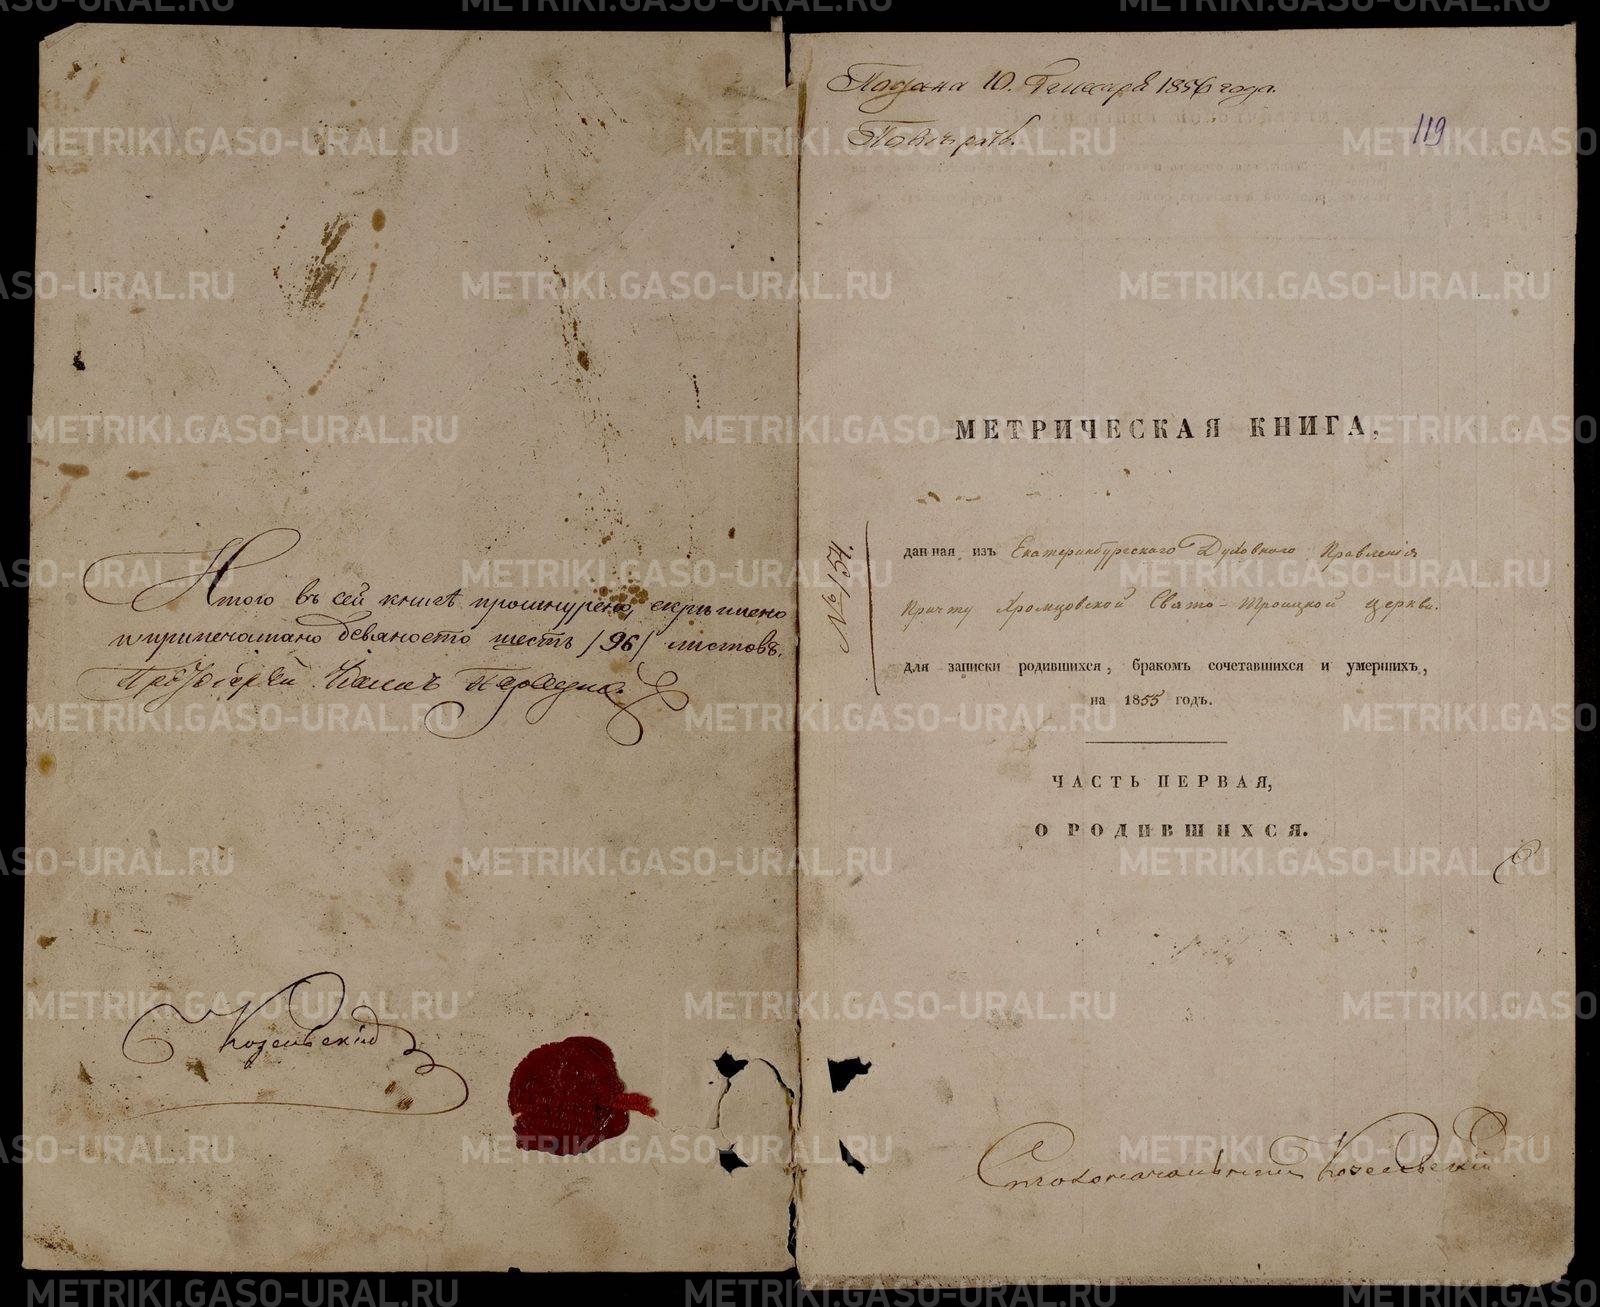 Итого въ сей книгѣ прошнуровано, скрѣплено
и припечатано девяносто шесть /96/ листовъ.
Протоіерей
Козельскій
Подана 10. Генваря 1856 года.
Повѣрять.
119
МЕТРИЧЕСКАЯ КНИГА,
№ 154.
данная изъ Екатеринбургского Духовного Правленія
Причту Хромцовской Свято-Троицкой церкви.
для записки родившихся, бракомъ сочетавшихся и умершихъ,
на 1855 годъ.
ЧАСТЬ ПЕРВАЯ,
О РОДИВШИХСЯ.
Столоначальникъ Козельскій
METRIKI.GASO-URAL.RU